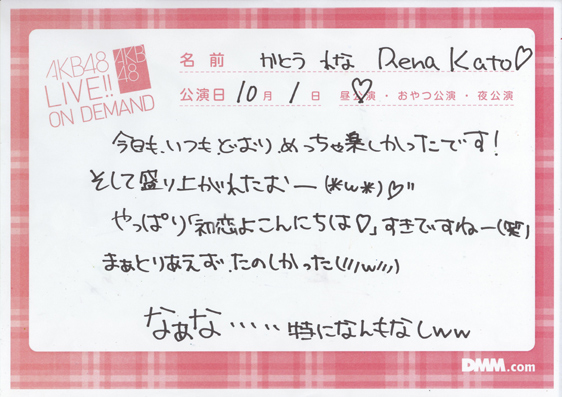 AKB48
LIVE!!
ON DEMAND
AKB
48
名前 かとう れな Rena Kato♡
公演日 10月 1日 昼公演・おやつ公演・夜公演
今日も、いつもどおり、めっちゃ楽しかったです!
そして盛り上がれたおー(*w*)♡"
やっぱり「初恋よこんにちは♡」すきですねー(笑)
まぁとりあえず、たのしかった(///w///)
なぁな……特になんもなしww
DMM.com